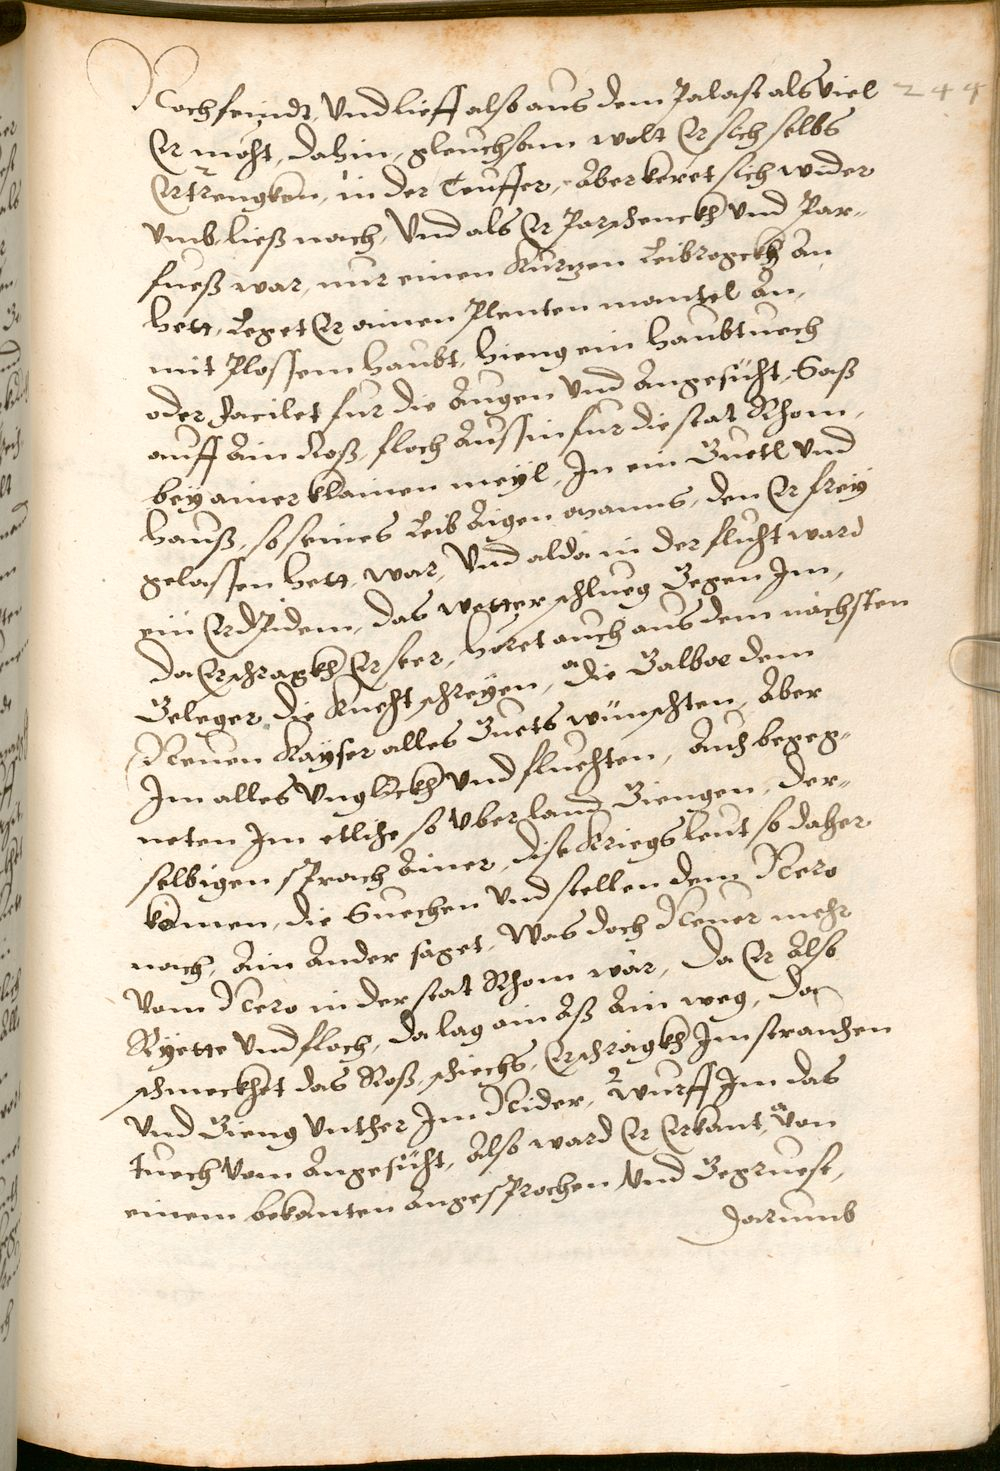 Noch feindt, Vnd lieff also aus dem Palast als viel 244
Er mocht, dahin, gleuchsam wolt Er sich selbs
Ertrengken, in der Teuffer, Aber keret sich wider
vmb, ließ nach, Vnd als Er Parschenckh vnd Par-
fueß war, nur einen Kurtzen Leibrogckh an
hett, Leget Er ainen Plenten mantel An,
mit Plossem haubt, hieng ein haubtuech
oder Facilet fur die Augen vnd Angesicht, Saß
auff Ain Roß, floch Aussin fur die stat Rhom,
bey ainer klainen meyl, In ein Guetl vnd
hauß, so seines Leib Aigen manns, den Er frey
gelassen hett, war, Vnd alda in der flucht ward
ein Erdpidem, das wetter schlueg Gegen Im,
da Erschragkh Er seer, horet auch aus dem nachsten
Geleger die Knecht schreyen, die Galbae dem
Neuen Kayser alles Guets wünschten, Aber
Im alles Vnglickh vnd fluchten, Auch begeg-
neten Im etliche so vber land Giengen, der-
selbigen sprach Ainer, dise Kriegsleut so daher
komen, die Suechen vnd stellen dem Nero
nach, Ain Ander saget, Was doch Neuer mehr
vom Nero in der stat Rhom wär, Da Er Also
Ryette vnd floch, da lag ain Aß Am weg, das
schmeckhet das Roß, schiechs, Erschragkh Im strauchen
vnd Gieng vnther Im Nider, Wurff Im das
tuech vom Angesicht, Also ward Er Erkant, von
einem bekanten Angesprochen vnd Gegruest,
darumb